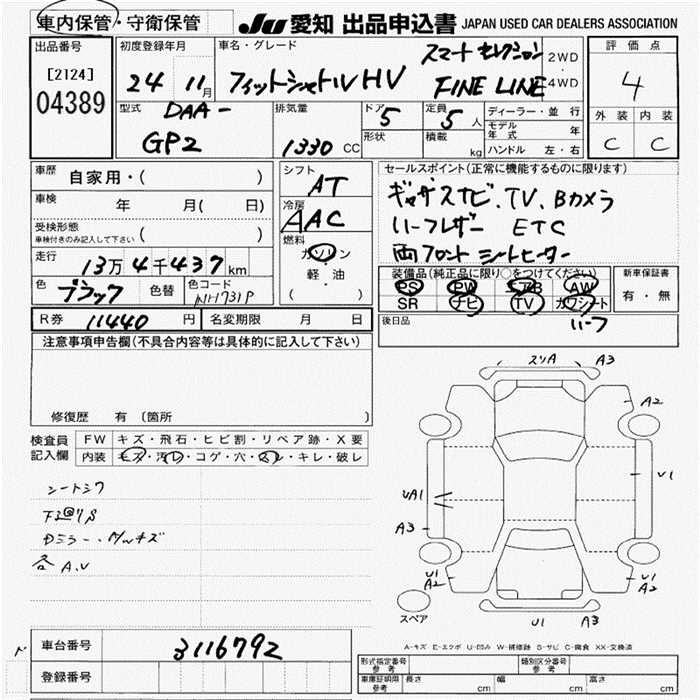 車内保管・守衛保管
JU 愛知 出品申込書 JAPAN USED CAR DEALERS ASSOCIATION
出品番号
[2124]
04389
初度登録年月
24 11月
車名・グレード
フィットシャトルHV
スマートセレクション
FINE LINE
2WD
4WD
評価点
4
外装 内装
C C
型式
DAA-
GP2
排気量
1330 CC
ドア
5
形状
定員
5人
積載
kg
ディーラー・並行
モデル年式 年
ハンドル 左・右
車歴
自家用・( )
車検
年 月( 日)
受検形態
車検付きのみ記入して下さい ( )
走行
13万4千437km
色
ブラック
色替
色コード
NH731P
シフト
AT
冷房
AAC
燃料
ガソリン
軽・油
( )
セールスポイント(正常に機能するものに限ります)
ギャザスナビ、TV、Bカメラ
ハーフレザー ETC
両フロントシートヒーター
装備品(純正品に限り○をつけてください)
PS PW エアB AW
SR ナビ TV カワシート
ハーフ
新車保証書
有・無
R券 11440 円
名変期限 月 日
後日品
注意事項申告欄(不具合内容等は具体的に記入して下さい)
修復歴 有 (箇所
検査員
記入欄
FW キズ・飛石・ヒビ割・リペア跡・X要
内装 キズ・汚レ・コゲ・穴・スレ・キレ・破レ
シートシワ
各A.U
スリA A3
A2
U1
UA1
A3
U1
A2
U1
A2
U1 A3
スペア
A-キズ E-エクボ U-凹み W-補修跡 S-サビ C-腐食 XX-交換済
車台番号 3116792
登録番号
形式指定番号
参考
類別区分番号
参考
車庫証明用
参考
長さ cm 幅 cm 高さ cm